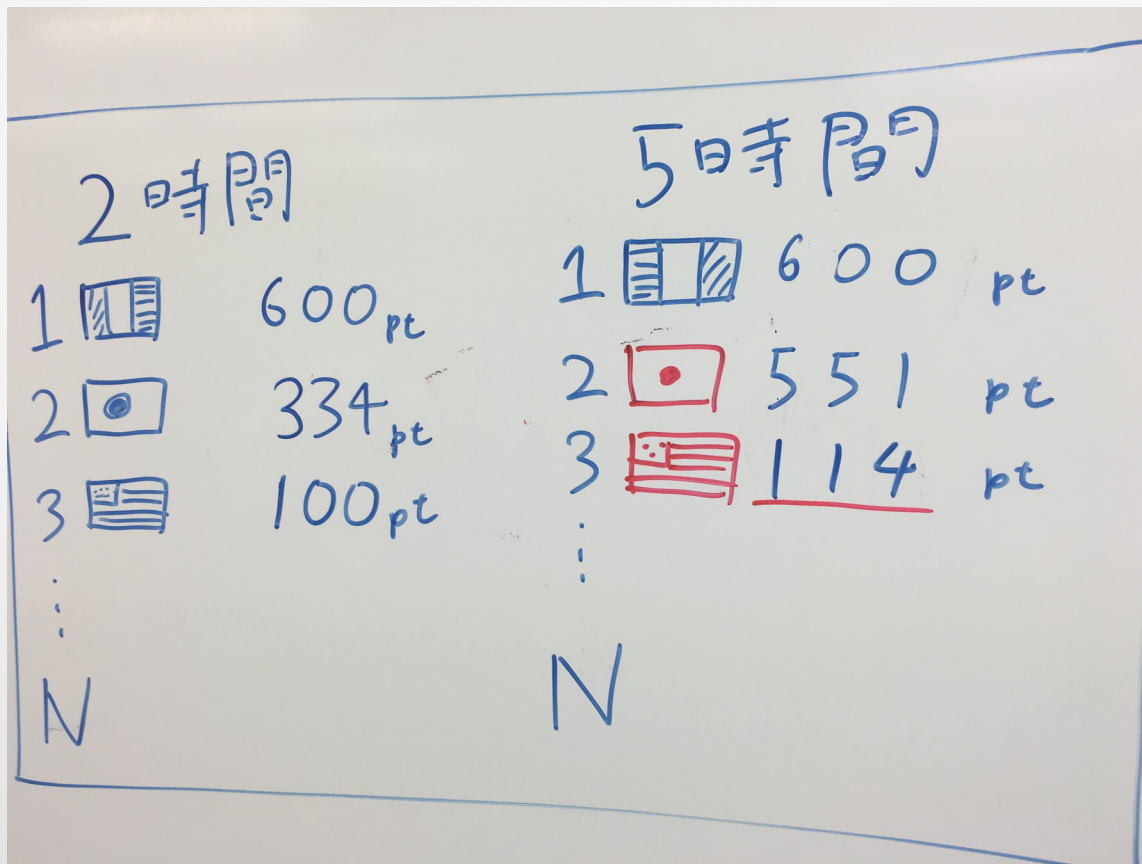 2時間
1 600pt
2 334pt
3 100pt
⋮
N
5時間
1 600 pt
2 551 pt
3 114 pt
⋮
N